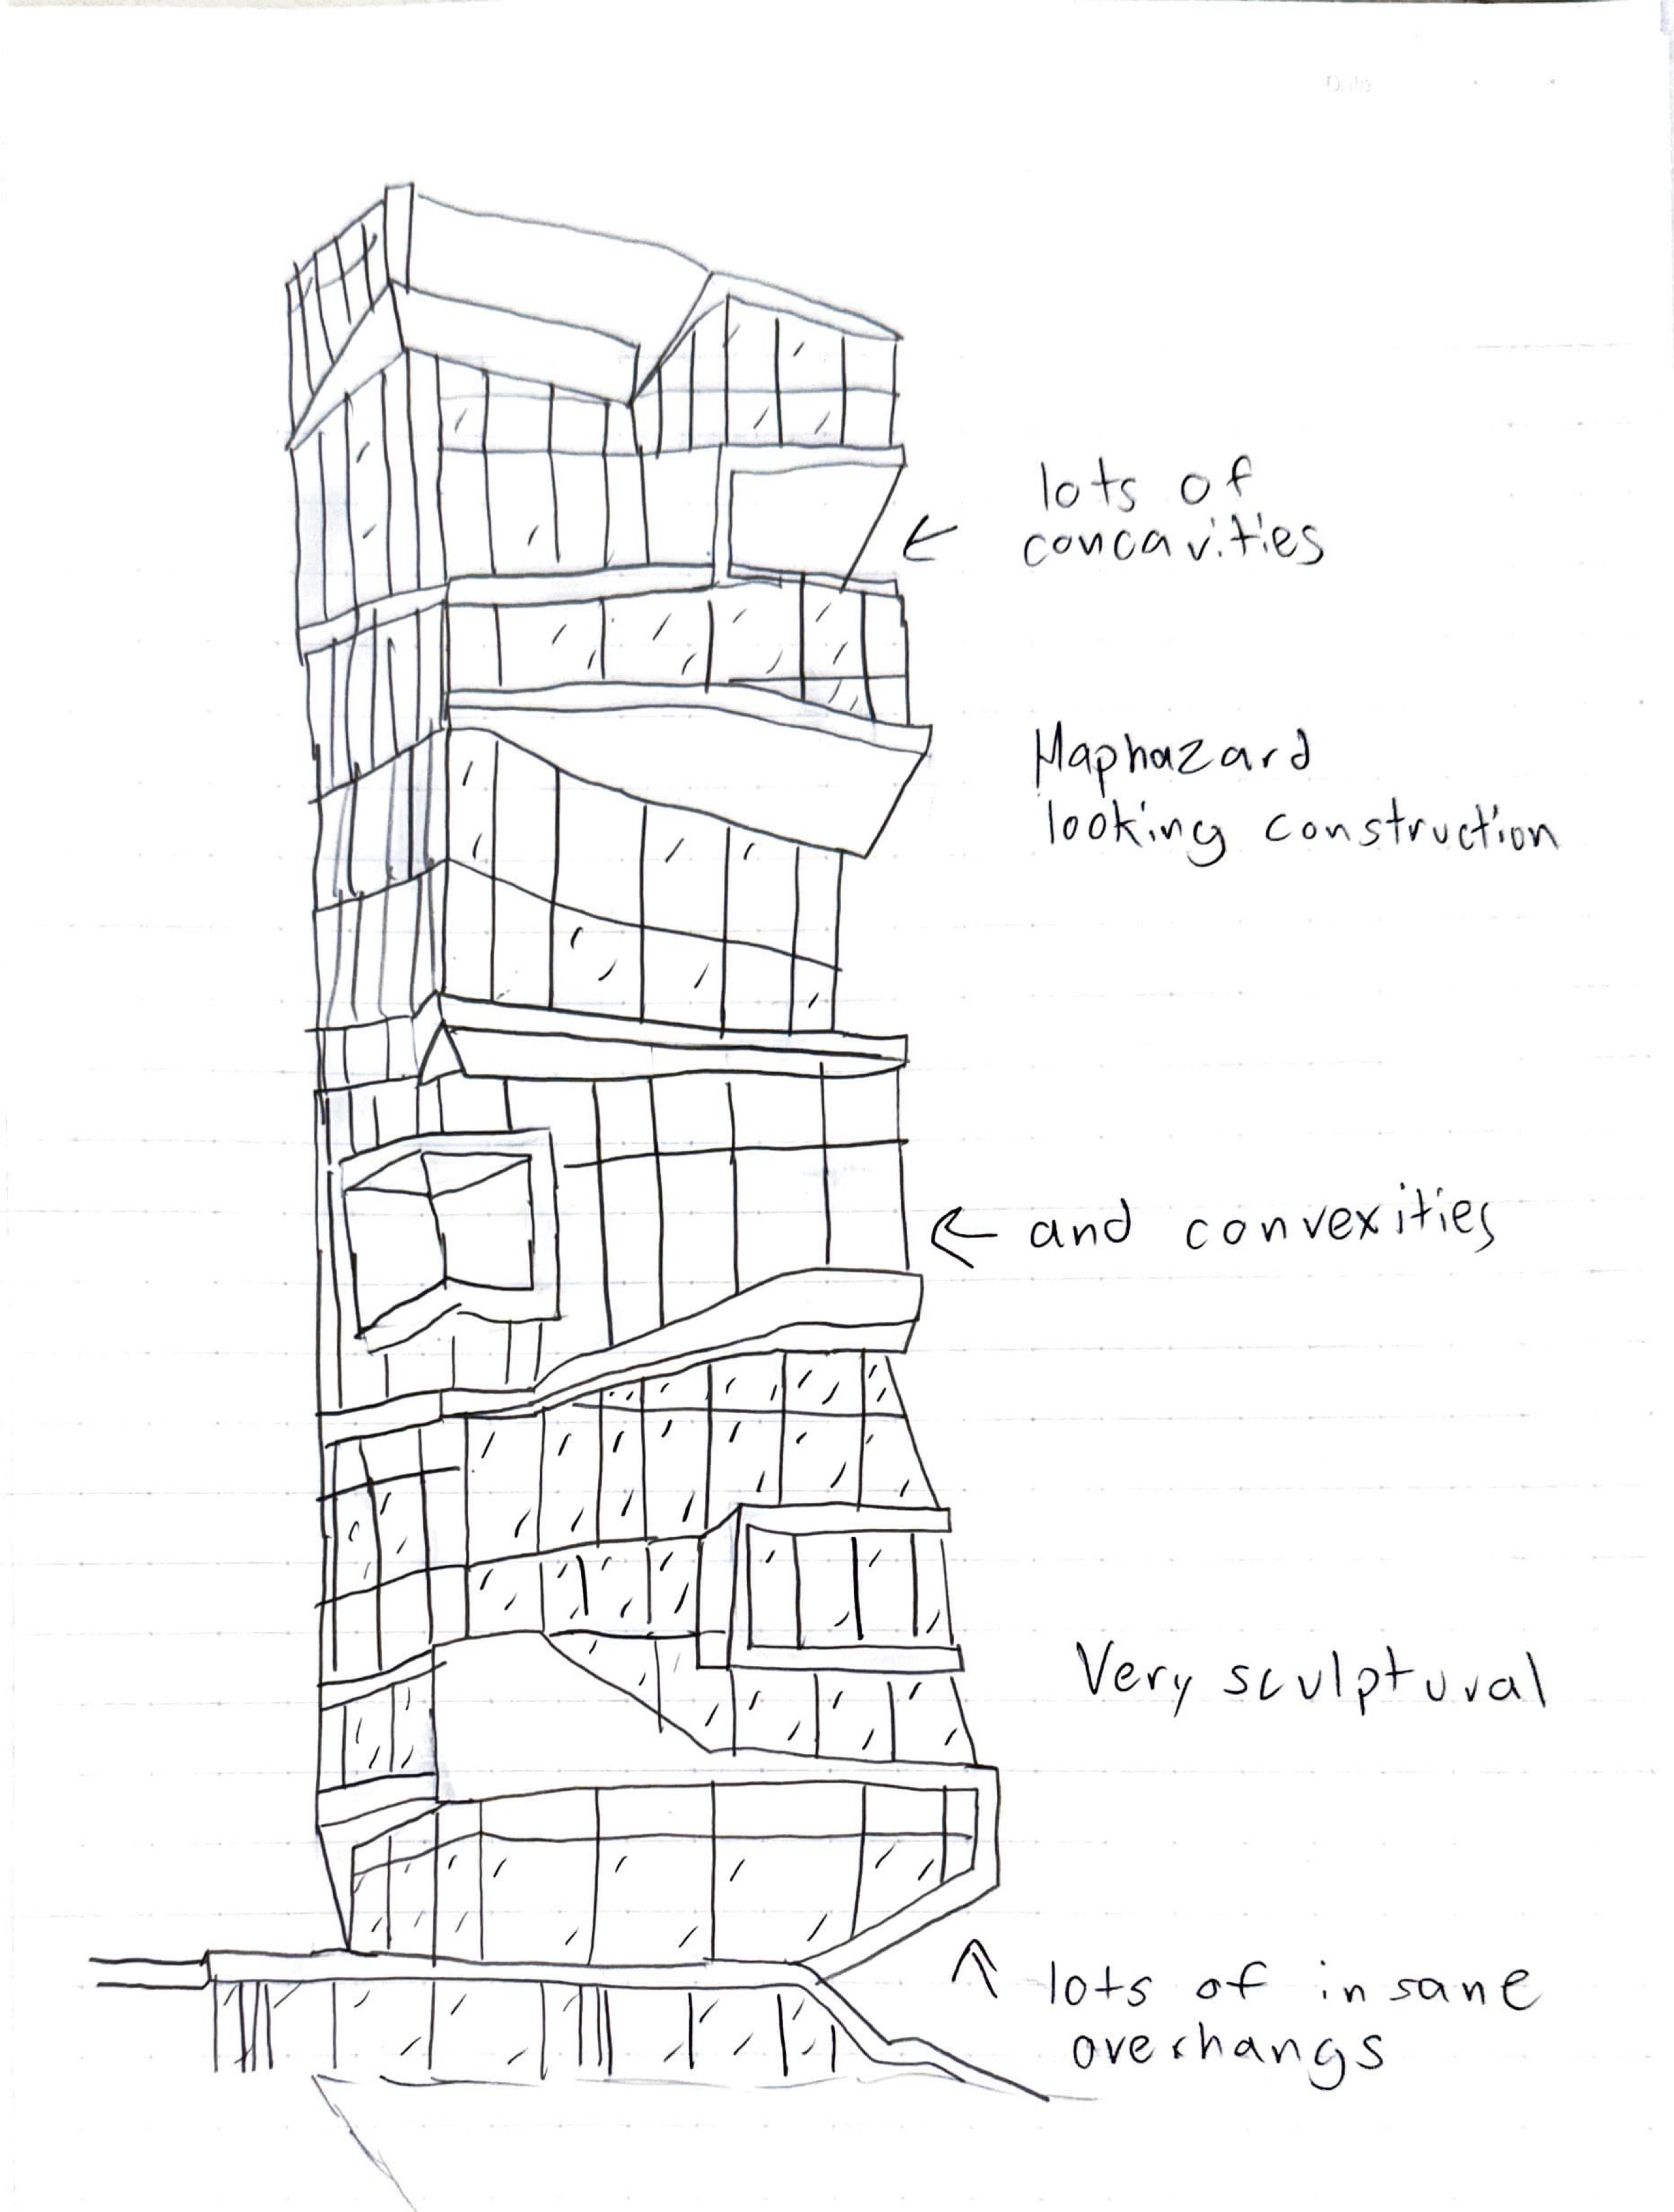 Date
lots of
concavities
Haphazard
looking construction
and convexities
Very sculptural
lots of insane
overhangs